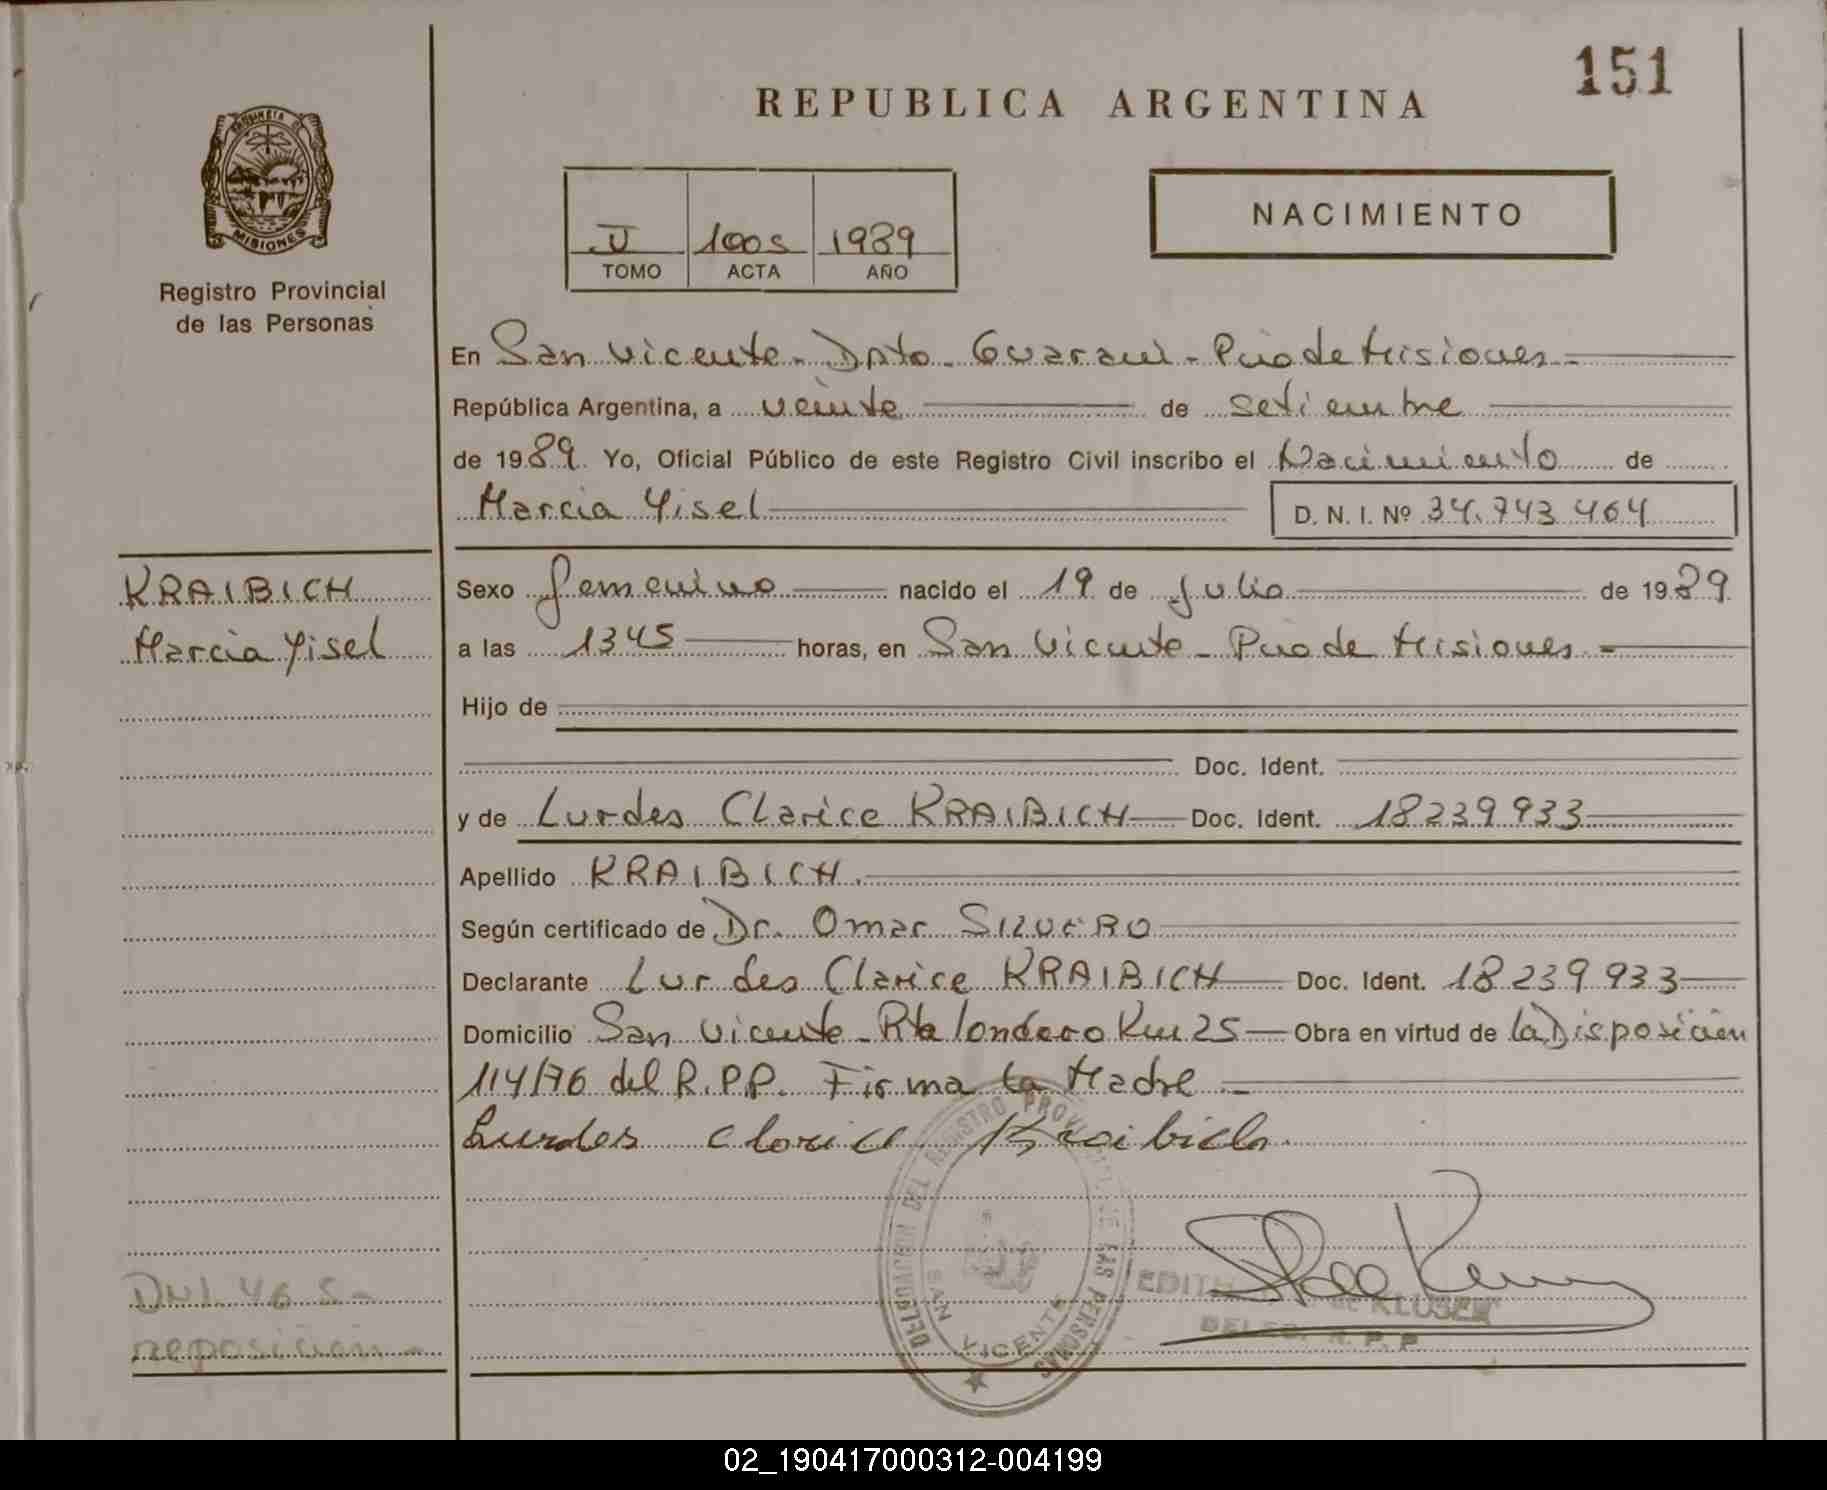 151
REPUBLICA ARGENTINA
PROVINCIA DE
MISIONES
Registro Provincial
de las Personas
II 1005 1989
TOMO ACTA AÑO
NACIMIENTO
En San Vicente - Dpto - Guaraní - Pcia de Misiones -
República Argentina, a veinte de setiembre
de 1989. Yo, Oficial Público de este Registro Civil inscribo el Nacimiento de
Marcia Yisel D. N. I. Nº 34.743.464
KRAIBICH
Marcia Yisel
Sexo femenino nacido el 19 de Julio de 1989
a las 1345 horas, en San Vicente - Pcia de Misiones -
Hijo de
Doc. Ident.
y de Lurdes Clarice KRAIBICH Doc. Ident. 18239933
Apellido KRAIBICH.
Según certificado de Dr. Omar SILVERO
Declarante Lurdes Clarice KRAIBICH Doc. Ident. 18239933
Domicilio San Vicente - Rta Londero Km 25 Obra en virtud de la Disposición
114/76 del R.P.P. Firma la Madre -
Lurdes Clarice Kraibich.
DELEGACION DEL REGISTRO PROVINCIAL DE LAS PERSONAS
SAN VICENTE
EDITH de KLUSER
DELEG. R. P. P.
DNI. 46 S-
reposición -
02_190417000312-004199